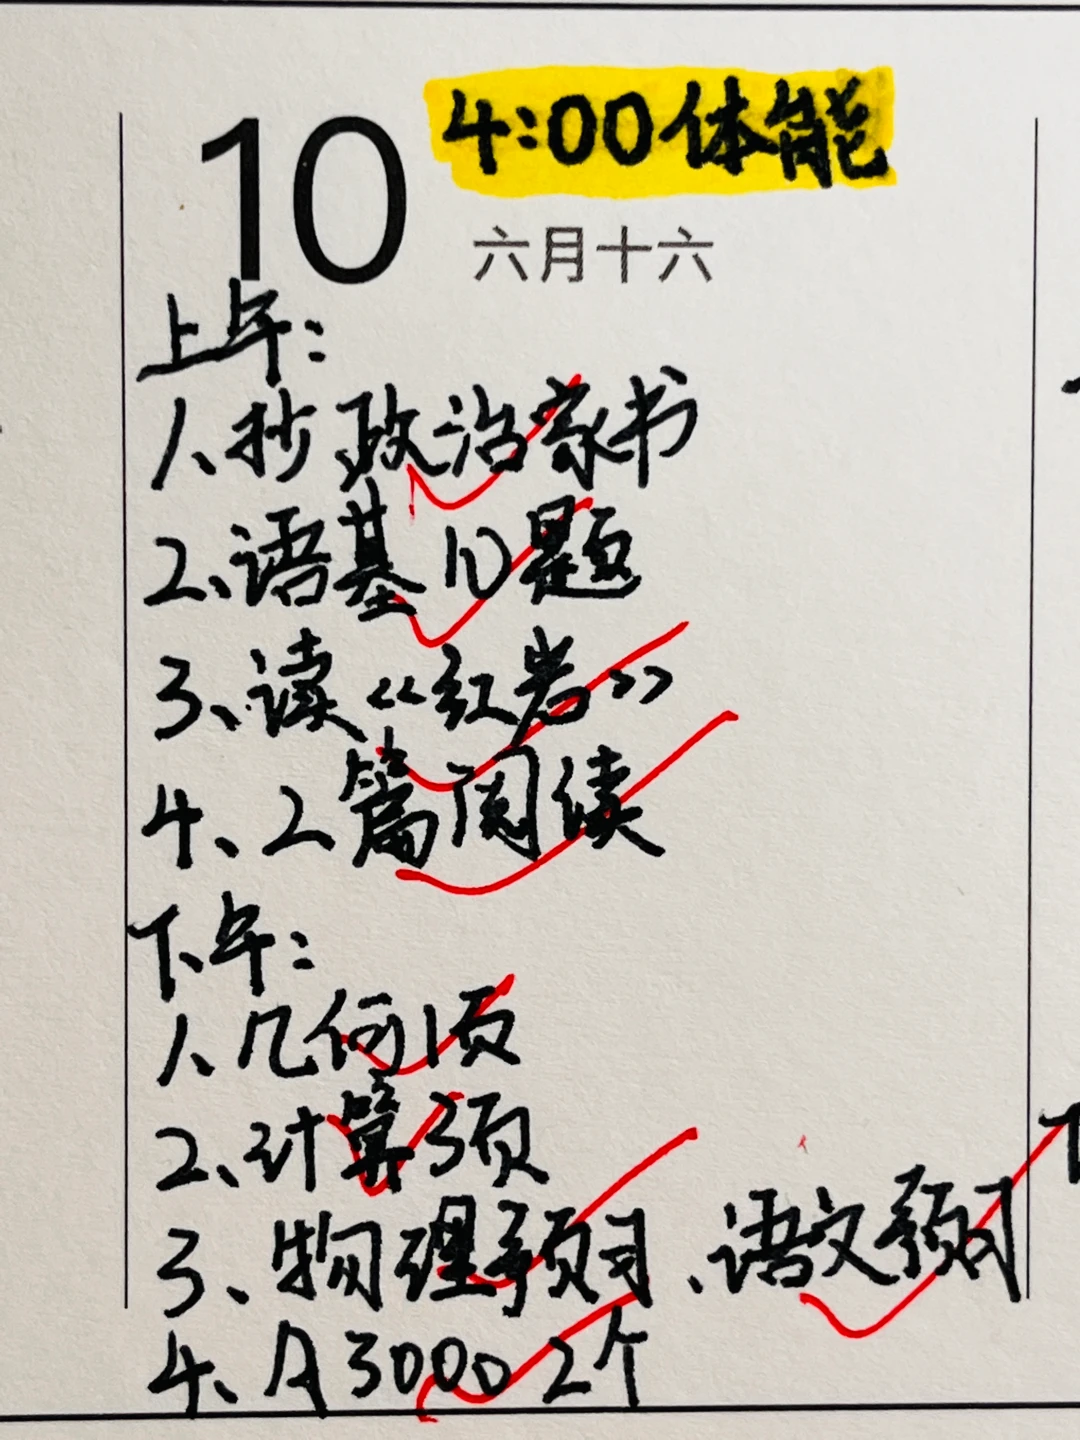 10 4:00体能
六月十六
上午:
1、抄政治家书
2、语基10题
3、读《红岩》
4、2篇阅读
下午:
1、几何1页
2、计算3页
3、物理预习、语文预习
4、A3000 2个